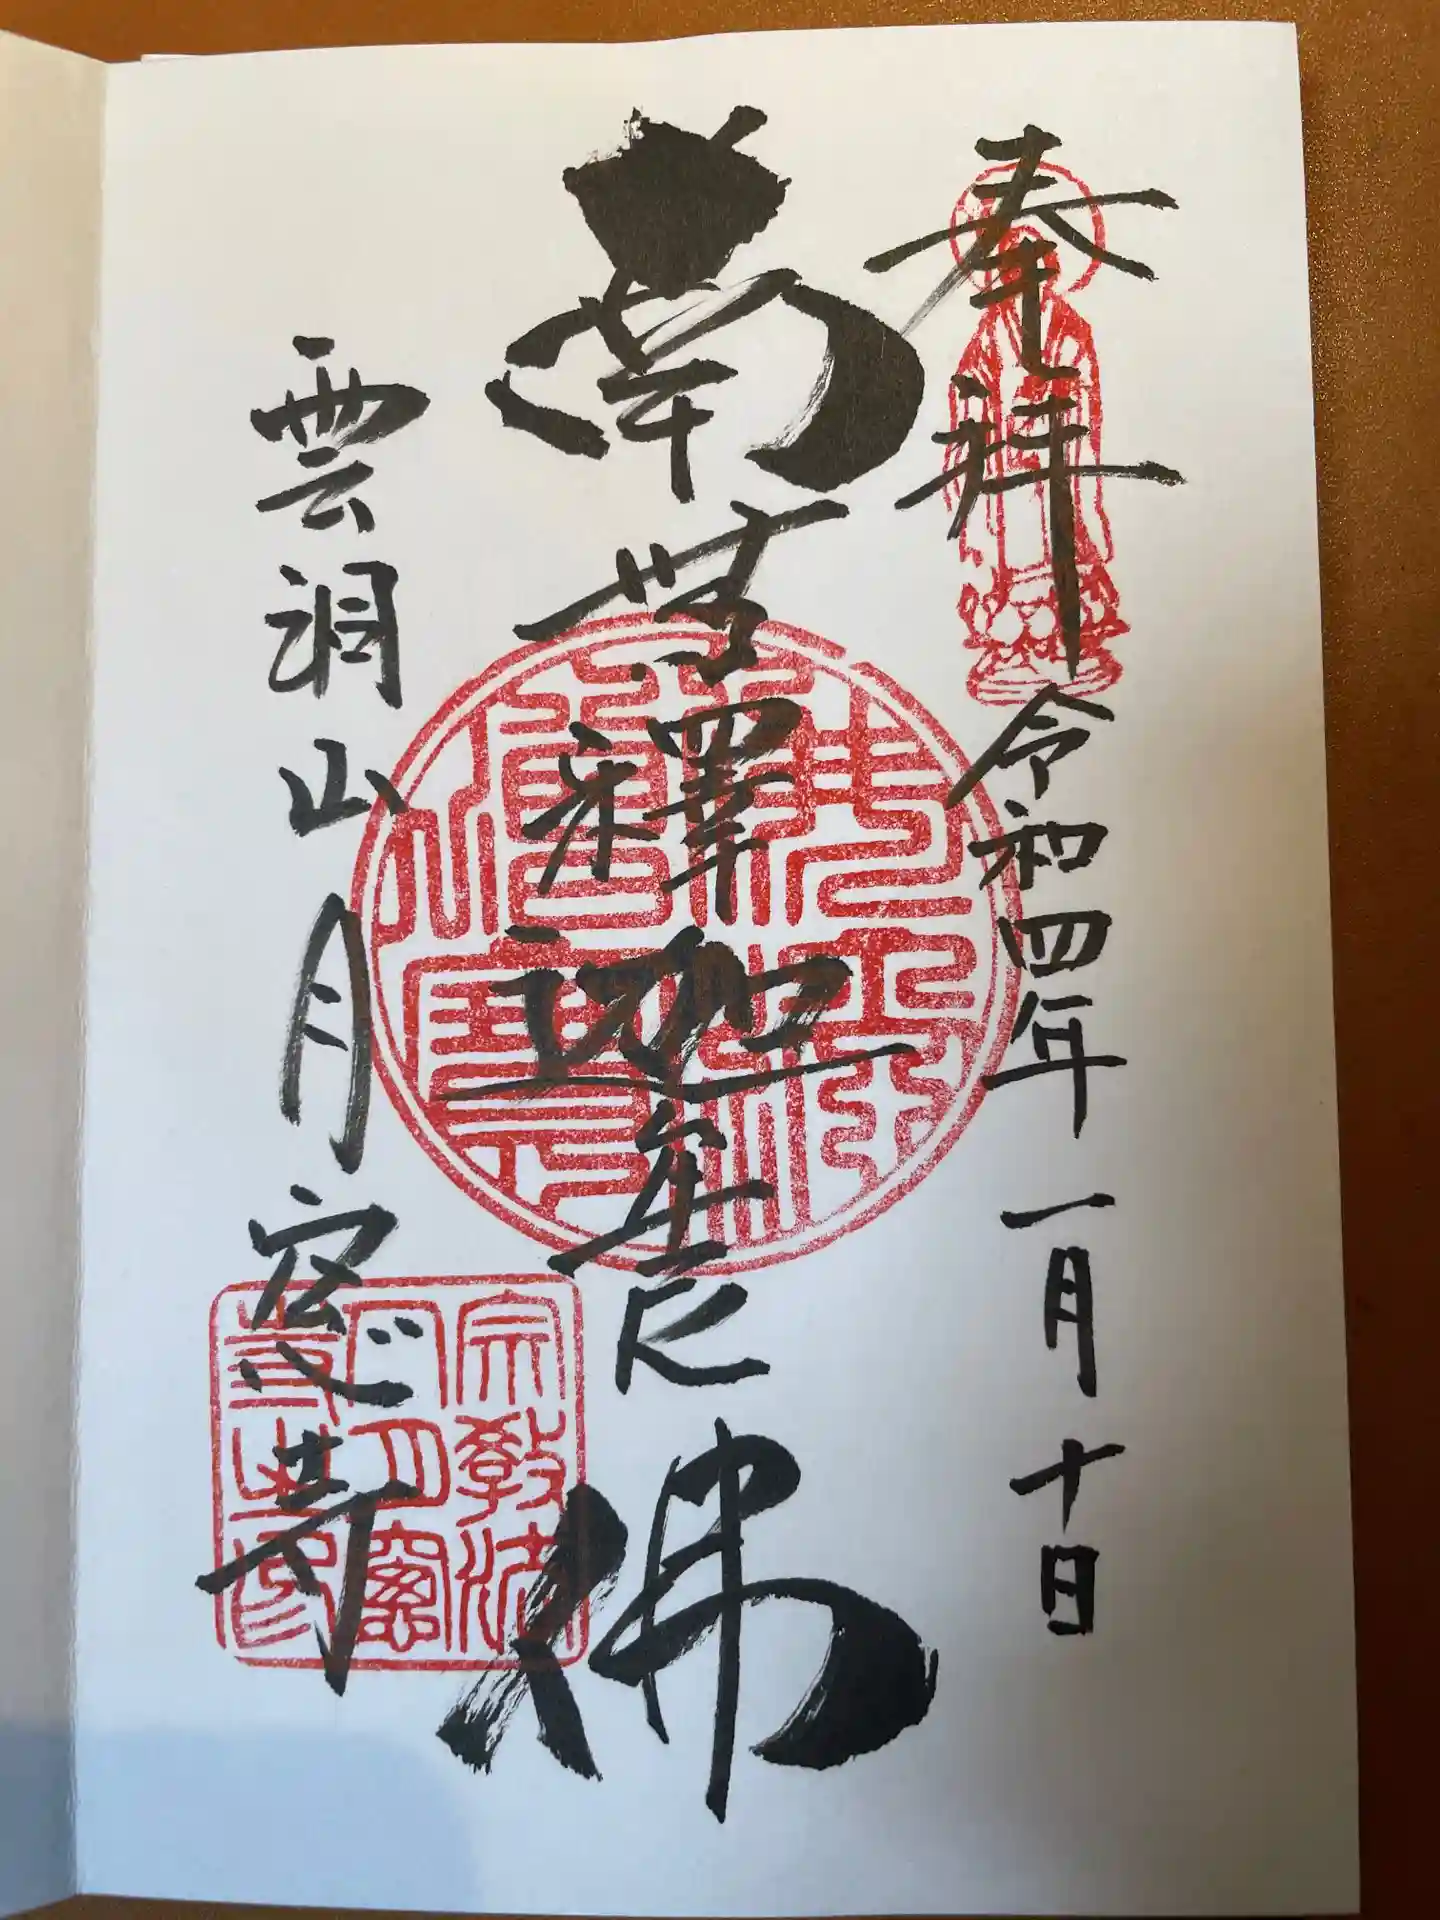 奉拝 令和四年一月十日
南無釋迦牟尼佛
雲洞山月窓寺
佛法
僧寶
宗教法
人月窓
寺之印